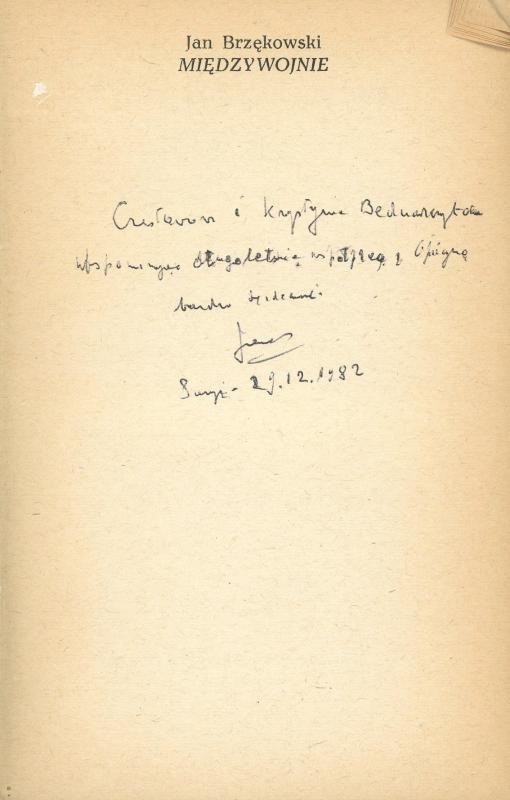 Jan Brzękowski
MIĘDZYWOJNIE
Czesławom i Krystynie Bednarczykom
wspominając długoletnią współpracę z Oficyną
bardzo serdecznie
Jan
Paryż - 29.12.1982